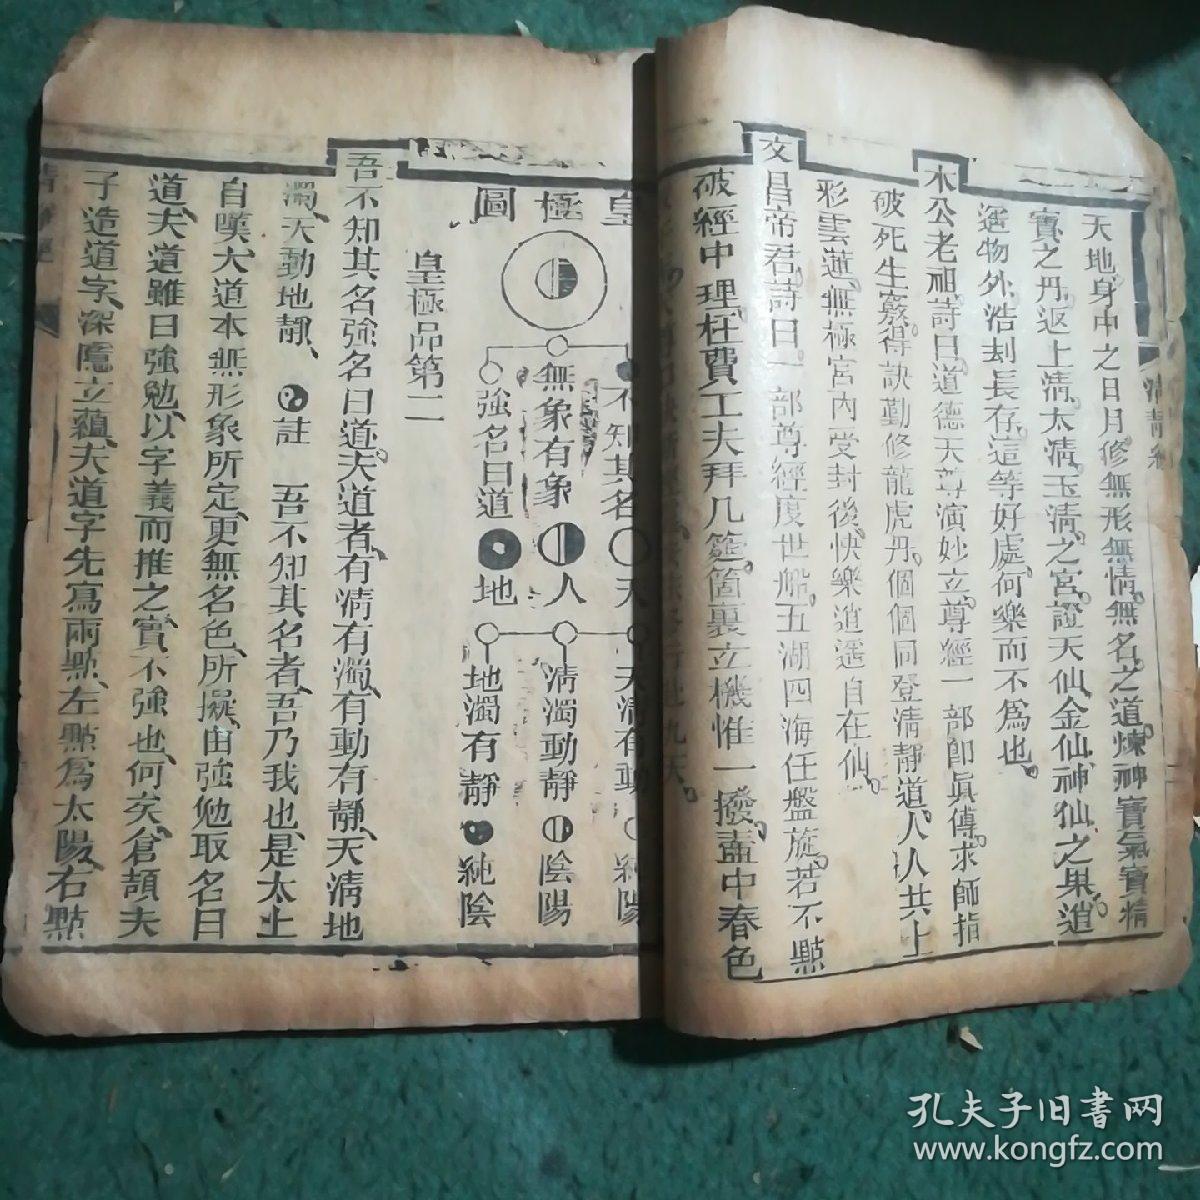 清靜經
天地。身中之日月。修無形無情。無名。之道。煉神寶氣寶精
寶之丹。返上清。太清。玉清。之宮。證天仙金仙神仙之果。逍
遥物外。浩刦長存。這等好處。何樂而不為也。
木公老祖。詩曰。道德天尊演妙立。尊經一部即眞傳。求師指
破死生竅。得訣勤修龍虎丹。個個同登清靜道。人人共上
彩雲蓮。無極宮內受封後。快樂逍遥自在仙。
文昌帝君。詩曰。一部尊經度世船。五湖四海任盤旋。若不點
破經中理。枉費工夫拜几筵。箇裏立機惟一撥。壺中春色
九天。
皇極圖
不知其名 天 天清有動 純陽
無象有象 人 清濁動靜 陰陽
強名曰道 地 地濁有靜 純陰
皇極品第二
吾不知其名強名曰道、夫道者、有清有濁、有動有靜、天清地
濁、天動地靜、 註 吾不知其名者、吾乃我也、是太上
自嘆、大道本無形象所定、更無名色、所擬、由強勉取名曰
道、夫道雖曰強勉、以字義而推之、實不強也、何矣、倉頡夫
子造道字、深隱立蘊、夫道字先寫兩點、左點為太陽、右點